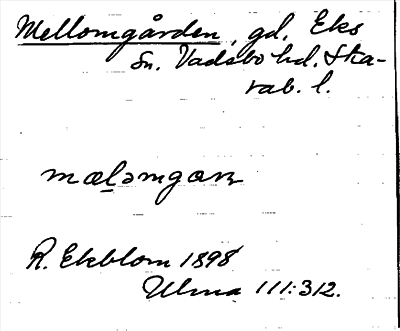 Mellomgården, gd, Eks
sn. Vadsbo hd. Ska-
rab. l.
mæləmgaɳ
R. Ekblom 1898
Ulma 111:312.